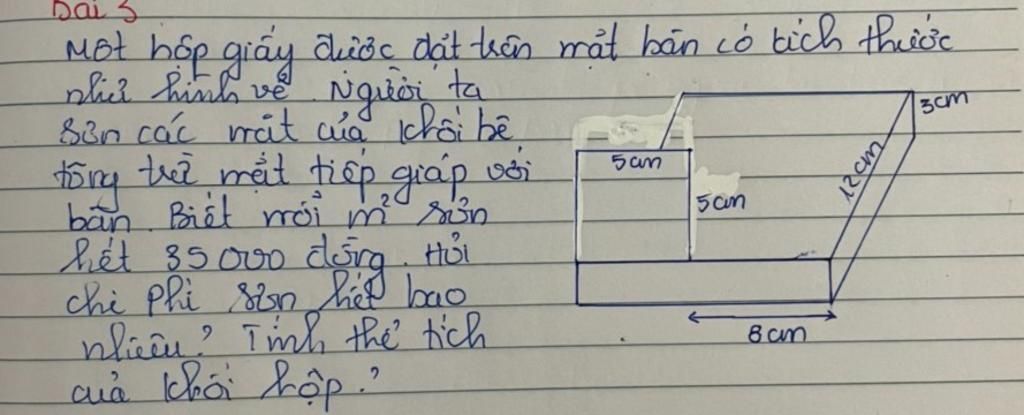 Bài 3
Một hộp giấy được đặt trên mặt bàn có kích thước
như hình vẽ. Người ta
sơn các mặt của khối bê
tông trừ mặt tiếp giáp với
bàn. Biết mỗi m² sơn
hết 35000 đồng. Hỏi
chi phí sơn hết bao
nhiêu? Tính thể tích
của khối hộp?
3cm
5cm
12cm
5cm
8cm